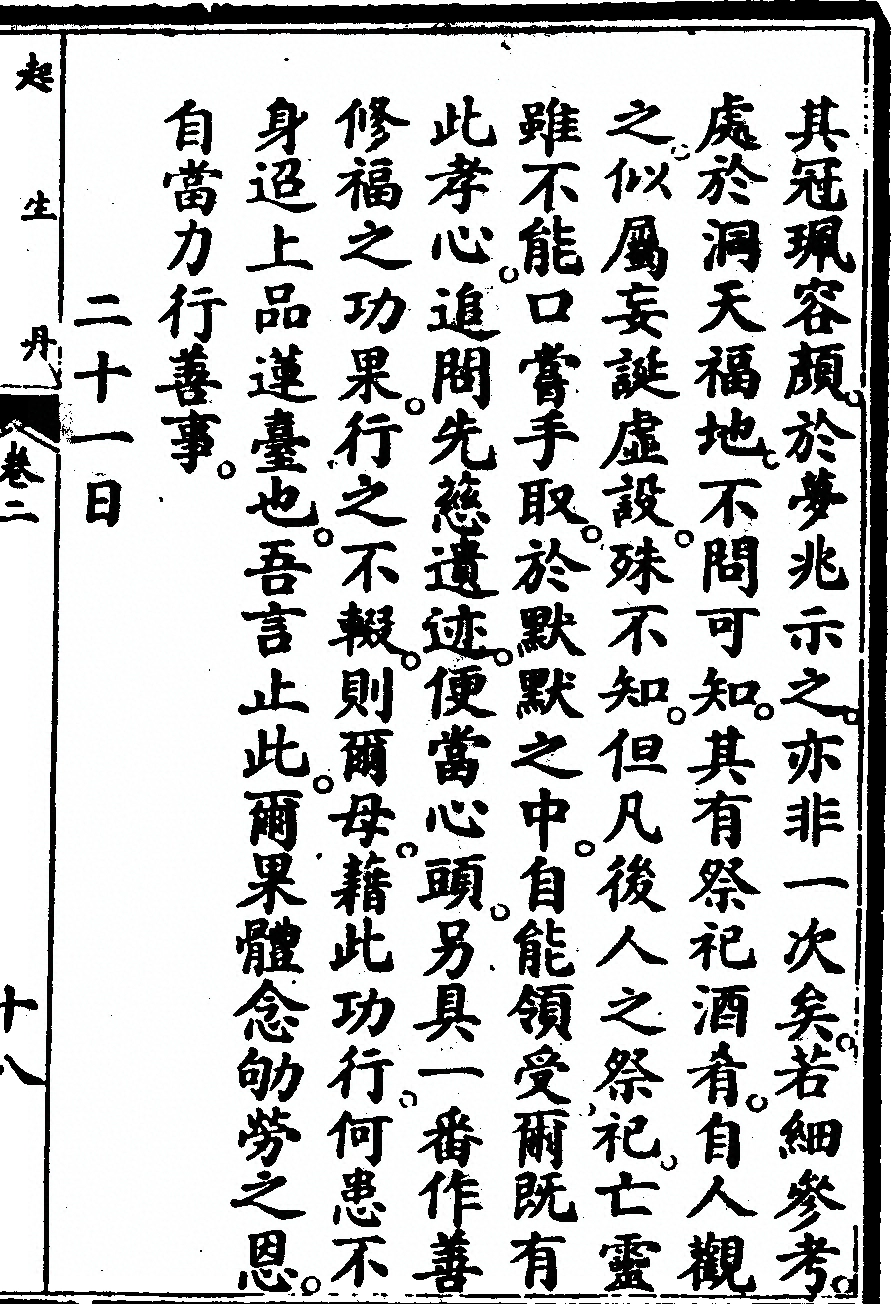 其冠珮容顏。於夢兆示之。亦非一次矣。若細參考。
處於洞天福地。不問可知。其有祭祀酒肴。自人觀
之。似屬妄誕虛設。殊不知。但凡後人之祭祀。亡靈
雖不能口嘗手取。於默默之中。自能領受。爾既有
此孝心。追問先慈遺迹。便當心頭。另具一番作善
修福之功果。行之不輟。則爾母。藉此功行。何患不
身迢上品蓮臺也。吾言止此。爾果體念劬勞之恩。
自當力行善事。
二十一日
起生丹
卷二
十八